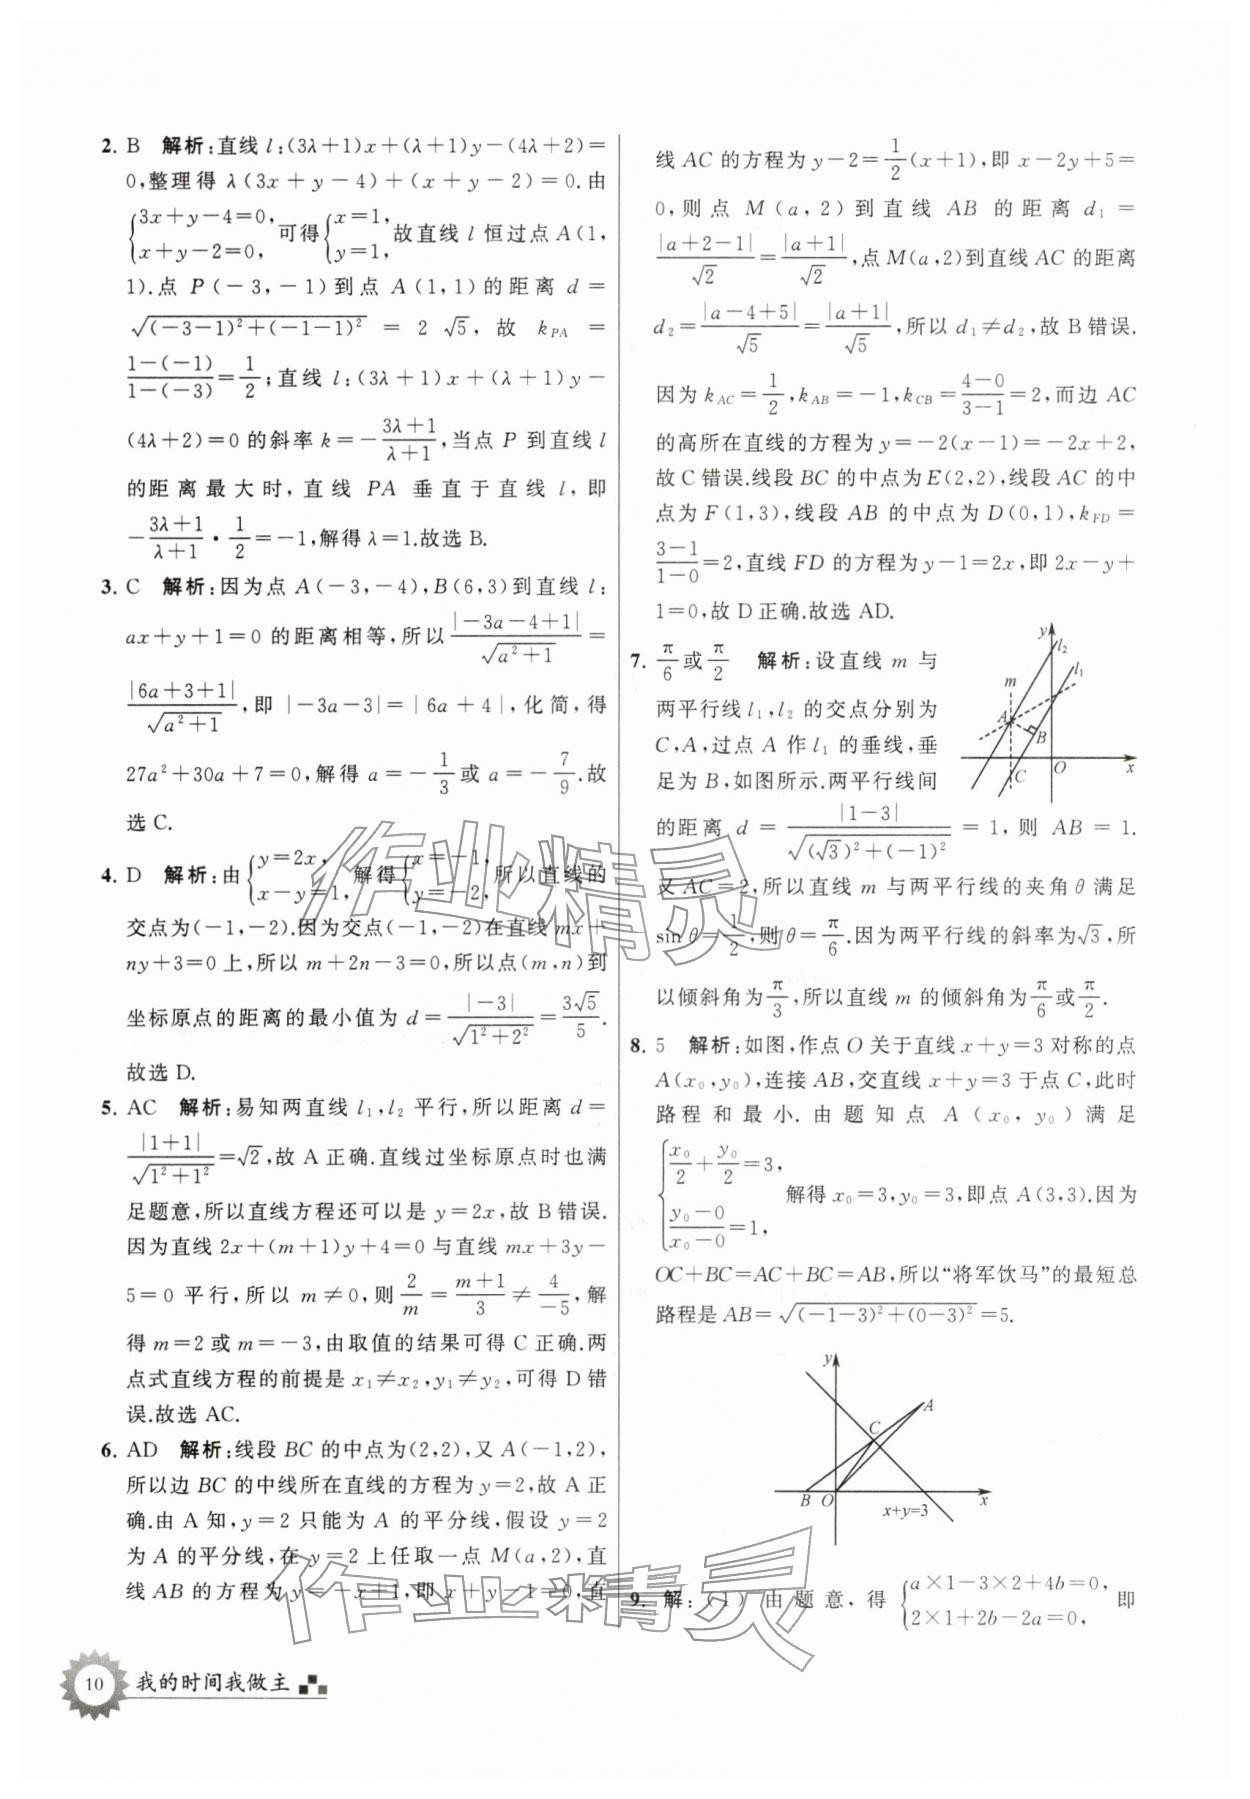 2. B 解析:直线 l:(3λ+1)x+(λ+1)y-(4λ+2)=
0,整理得 λ(3x+y-4)+(x+y-2)=0.由
{3x+y-4=0, x+y-2=0, 可得{x=1, y=1, 故直线 l 恒过点 A(1,
1).点 P(-3,-1)到点 A(1,1)的距离 d=
√((-3-1)²+(-1-1)²) = 2√5, 故 k_PA =
(1-(-1))/(1-(-3))=1/2;直线 l:(3λ+1)x+(λ+1)y-
(4λ+2)=0 的斜率 k=-(3λ+1)/(λ+1),当点 P 到直线 l
的距离最大时,直线 PA 垂直于直线 l,即
-(3λ+1)/(λ+1)·1/2=-1,解得 λ=1.故选 B.
3. C 解析:因为点 A(-3,-4),B(6,3)到直线 l:
ax+y+1=0 的距离相等,所以|-3a-4+1|/√(a²+1)=
|6a+3+1|/√(a²+1),即|-3a-3|=|6a+4|,化简,得
27a²+30a+7=0,解得 a=-1/3或 a=-7/9.故
选 C.
4. D 解析:由{y=2x, x-y=1, 解得{x=-1, y=-2, 所以直线的
交点为(-1,-2).因为交点(-1,-2)在直线 mx+
ny+3=0 上,所以 m+2n-3=0,所以点(m,n)到
坐标原点的距离的最小值为 d=|-3|/√(1²+2²)=3√5/5.
故选 D.
5. AC 解析:易知两直线 l₁,l₂ 平行,所以距离 d=
|1+1|/√(1²+1²)=√2,故 A 正确.直线过坐标原点时也满
足题意,所以直线方程还可以是 y=2x,故 B 错误.
因为直线 2x+(m+1)y+4=0 与直线 mx+3y-
5=0 平行,所以 m≠0,则2/m=(m+1)/3≠4/-5,解
得 m=2或 m=-3,由取值的结果可得 C 正确.两
点式直线方程的前提是 x₁≠x₂,y₁≠y₂,可得 D 错
误.故选 AC.
6. AD 解析:线段 BC 的中点为(2,2),又 A(-1,2),
所以边 BC 的中线所在直线的方程为 y=2,故 A 正
确.由 A 知,y=2 只能为 A 的平分线,假设 y=2
为 A 的平分线,在 y=2 上任取一点 M(a,2),直
线 AB 的方程为 y=-x+1,即 x+y-1=0,直
线 AC 的方程为 y-2=1/2(x+1),即 x-2y+5=
0,则点 M(a,2)到直线 AB 的距离 d₁=
|a+2-1|/√2=|a+1|/√2,点 M(a,2)到直线 AC 的距离
d₂=|a-4+5|/√5=|a+1|/√5,所以 d₁≠d₂,故 B 错误.
因为 k_AC=1/2,k_AB=-1,k_CB=(4-0)/(3-1)=2,而边 AC
的高所在直线的方程为 y=-2(x-1)=-2x+2,
故 C 错误.线段 BC 的中点为 E(2,2),线段 AC 的中
点为 F(1,3),线段 AB 的中点为 D(0,1),k_FD=
(3-1)/(1-0)=2,直线 FD 的方程为 y-1=2x,即 2x-y+
1=0,故 D 正确.故选 AD.
7. π/6或π/2 解析:设直线 m 与
两平行线 l₁,l₂ 的交点分别为
C,A,过点 A 作 l₁ 的垂线,垂
足为 B,如图所示.两平行线间
y
l₂
l₁
m
A
B
C
O
x
的距离 d = |1-3|/√((√3)²+(-1)²) = 1, 则 AB = 1.
又 AC=2,所以直线 m 与两平行线的夹角 θ 满足
sin θ=1/2,则 θ=π/6.因为两平行线的斜率为√3,所
以倾斜角为π/3,所以直线 m 的倾斜角为π/6或π/2.
8. 5 解析:如图,作点 O 关于直线 x+y=3 对称的点
A(x₀,y₀),连接 AB,交直线 x+y=3 于点 C,此时
路程和最小.由题知点 A(x₀,y₀)满足
{x₀/2+y₀/2=3, (y₀-0)/(x₀-0)=1, 解得 x₀=3,y₀=3,即点 A(3,3).因为
OC+BC=AC+BC=AB,所以“将军饮马”的最短总
路程是 AB=√((-1-3)²+(0-3)²)=5.
y
A
C
B
O
x+y=3
x
9. 解:(1)由题意,得{a×1-3×2+4b=0, 2×1+2b-2a=0, 即
10 我的时间我做主
作业精灵
作业精灵